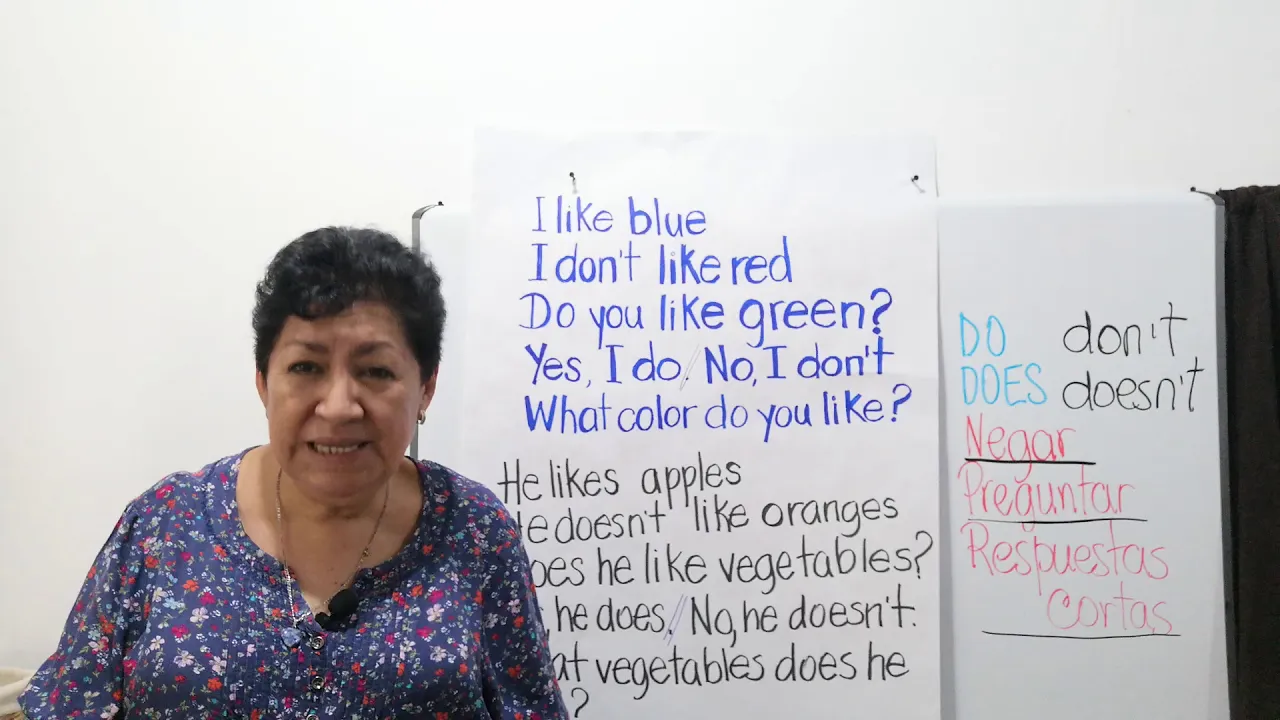 I like blue
I don't like red
Do you like green?
Yes, I do. / No, I don't
What color do you like?
He likes apples
e doesn't like oranges
oes he like vegetables?
, he does. / No, he doesn't.
at vegetables does he
?
DO don't
DOES doesn't
Negar
Preguntar
Respuestas
cortas